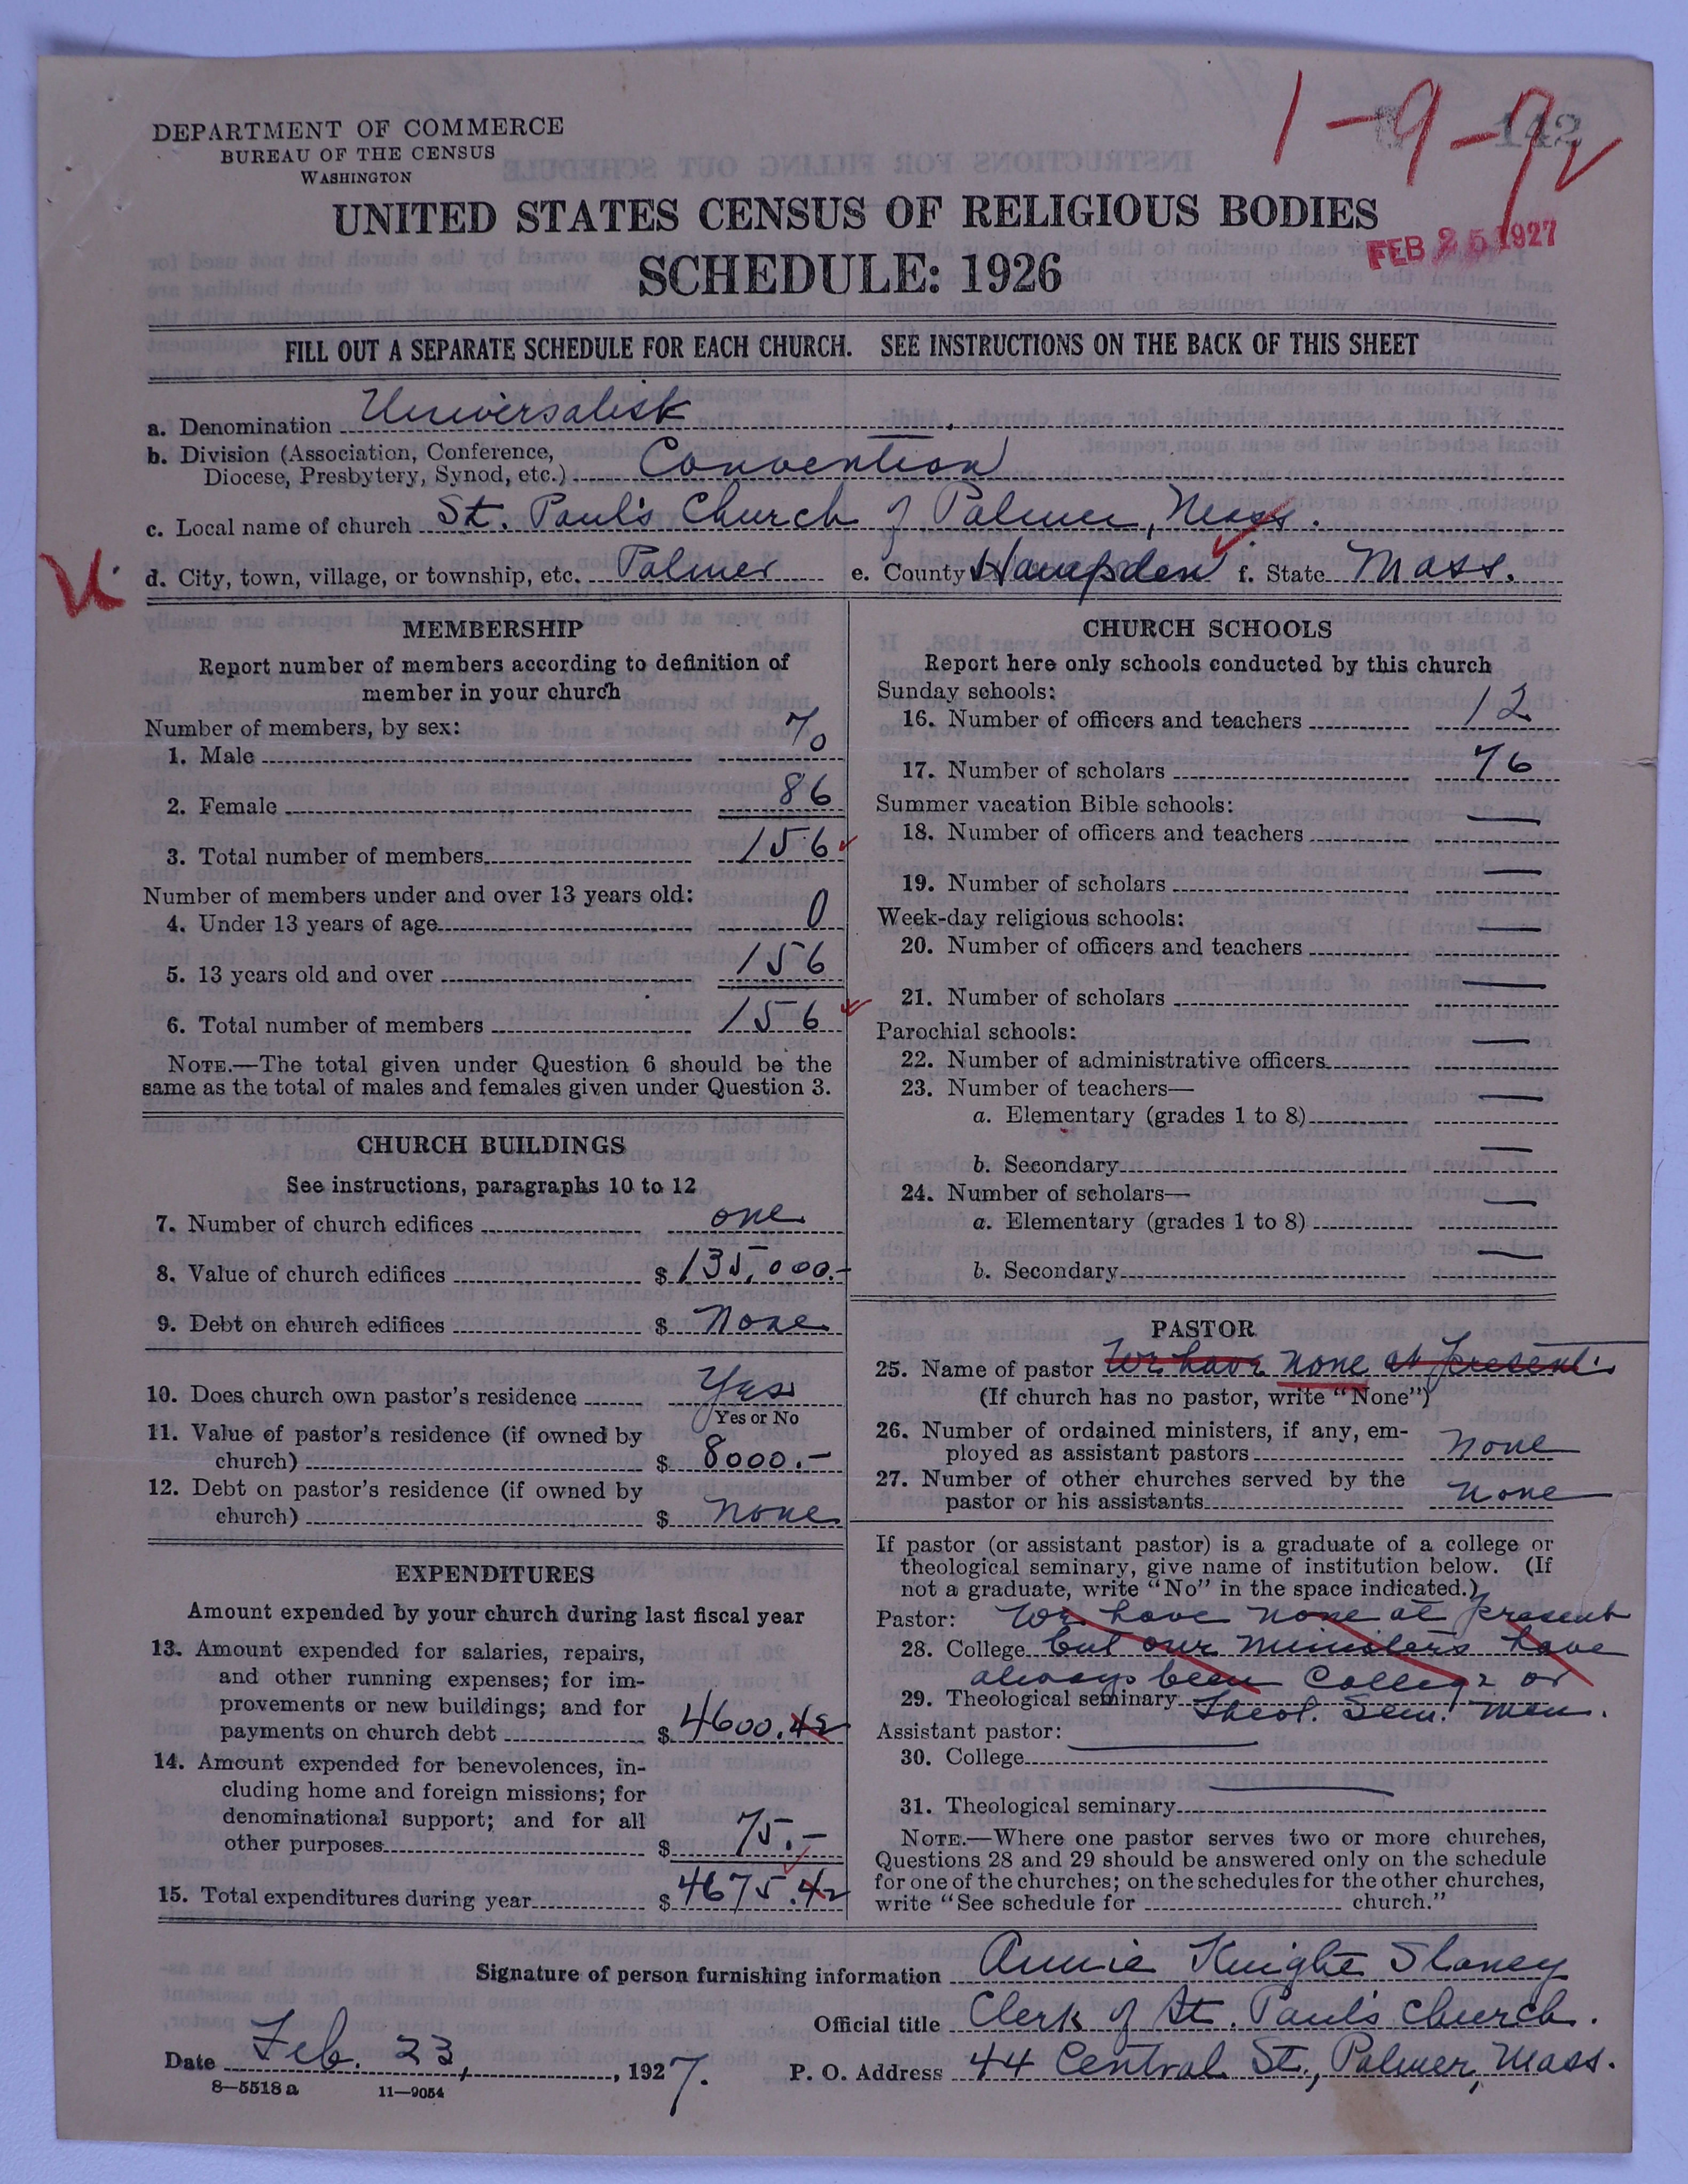 1-9-9
142
DEPARTMENT OF COMMERCE
BUREAU OF THE CENSUS
WASHINGTON
UNITED STATES CENSUS OF RELIGIOUS BODIES
FEB 25 1927
SCHEDULE: 1926
FILL OUT A SEPARATE SCHEDULE FOR EACH CHURCH. SEE INSTRUCTIONS ON THE BACK OF THIS SHEET
a. Denomination Universalist
b. Division (Association, Conference,
Diocese, Presbytery, Synod, etc.) Convention
c. Local name of church St. Paul's Church of Palmer, Mass.
d. City, town, village, or township, etc. Palmer e. County Hampden f. State Mass.
MEMBERSHIP
Report number of members according to definition of
member in your church
Number of members, by sex:
1. Male 70
2. Female 86
3. Total number of members 156
Number of members under and over 13 years old:
4. Under 13 years of age 0
5. 13 years old and over 156
6. Total number of members 156
NOTE.—The total given under Question 6 should be the
same as the total of males and females given under Question 3.
CHURCH BUILDINGS
See instructions, paragraphs 10 to 12
7. Number of church edifices one
8. Value of church edifices $ 135,000.-
9. Debt on church edifices $ None
10. Does church own pastor's residence Yes
Yes or No
11. Value of pastor's residence (if owned by
church) $ 8000.-
12. Debt on pastor's residence (if owned by
church) $ None
EXPENDITURES
Amount expended by your church during last fiscal year
13. Amount expended for salaries, repairs,
and other running expenses; for im-
provements or new buildings; and for
payments on church debt $ 4600.42
14. Amount expended for benevolences, in-
cluding home and foreign missions; for
denominational support; and for all
other purposes $ 75.-
15. Total expenditures during year $ 4675.42
CHURCH SCHOOLS
Report here only schools conducted by this church
Sunday schools:
16. Number of officers and teachers 12
17. Number of scholars 76
Summer vacation Bible schools:
18. Number of officers and teachers —
19. Number of scholars —
Week-day religious schools:
20. Number of officers and teachers —
21. Number of scholars —
Parochial schools:
22. Number of administrative officers —
23. Number of teachers—
a. Elementary (grades 1 to 8) —
b. Secondary —
24. Number of scholars—
a. Elementary (grades 1 to 8) —
b. Secondary —
PASTOR
25. Name of pastor We have none at present.
(If church has no pastor, write "None")
26. Number of ordained ministers, if any, em-
ployed as assistant pastors none
27. Number of other churches served by the
pastor or his assistants none
If pastor (or assistant pastor) is a graduate of a college or
theological seminary, give name of institution below. (If
not a graduate, write "No" in the space indicated.)
Pastor: We have none at present
28. College but our ministers have
always been College or
29. Theological seminary Theol. Sem. men.
Assistant pastor: —
30. College
31. Theological seminary —
NOTE.—Where one pastor serves two or more churches,
Questions 28 and 29 should be answered only on the schedule
for one of the churches; on the schedules for the other churches,
write "See schedule for church."
Signature of person furnishing information Annie Knight Slaney
Official title Clerk of St. Paul's Church.
Date Feb. 23, 1927. P. O. Address 44 Central St., Palmer, Mass.
8—5518 a 11—9054